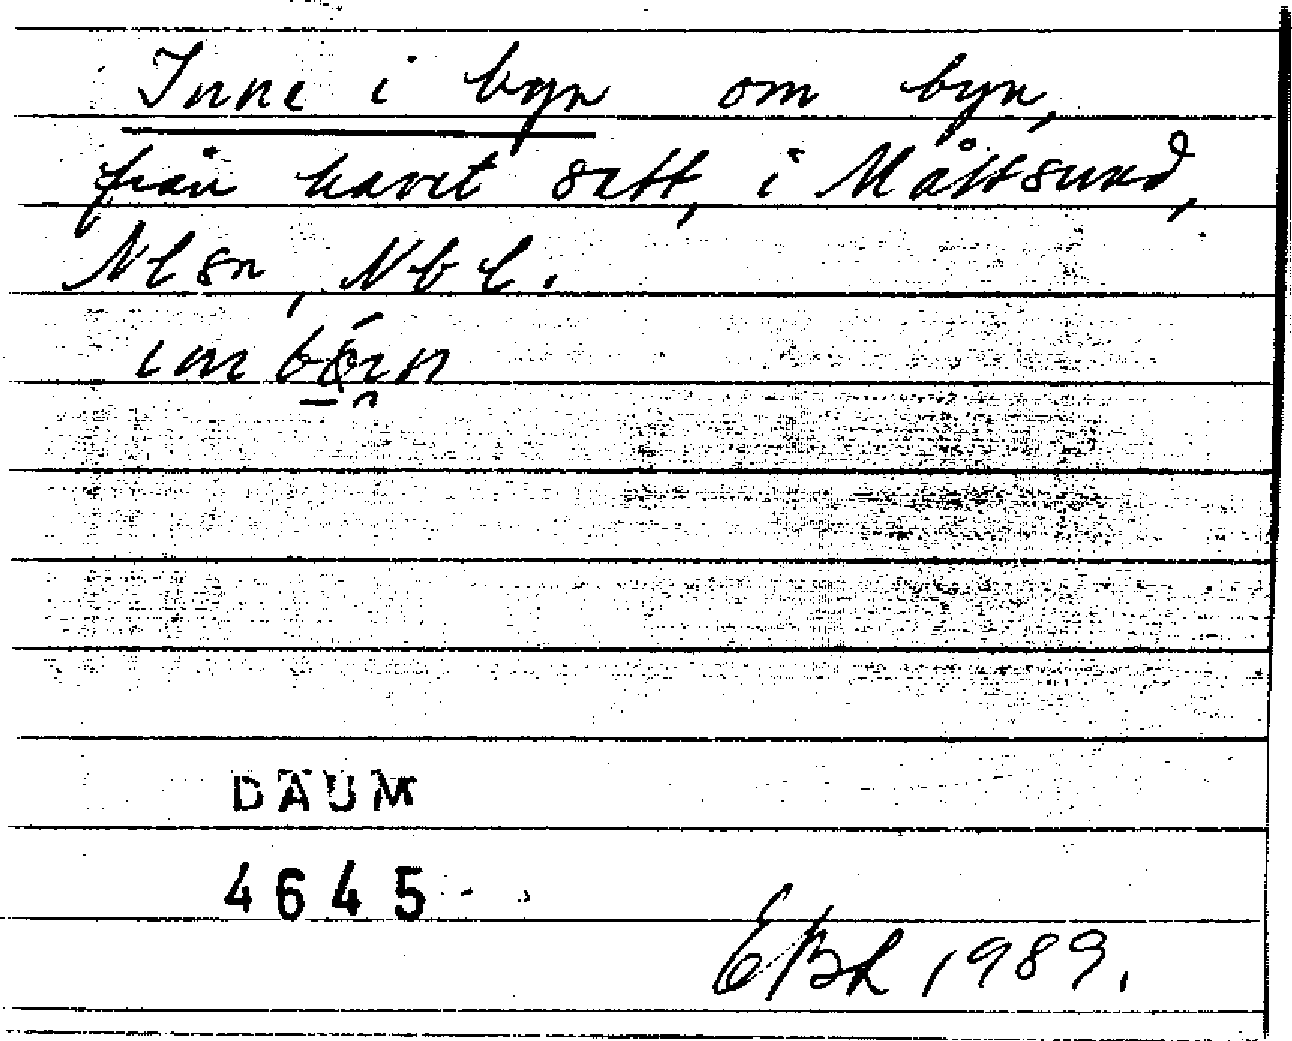 Inne i byn om byn,
från havet sett, i Måttsund,
Nlsn, Nbl.
DAUM
4645
EBL 1989.